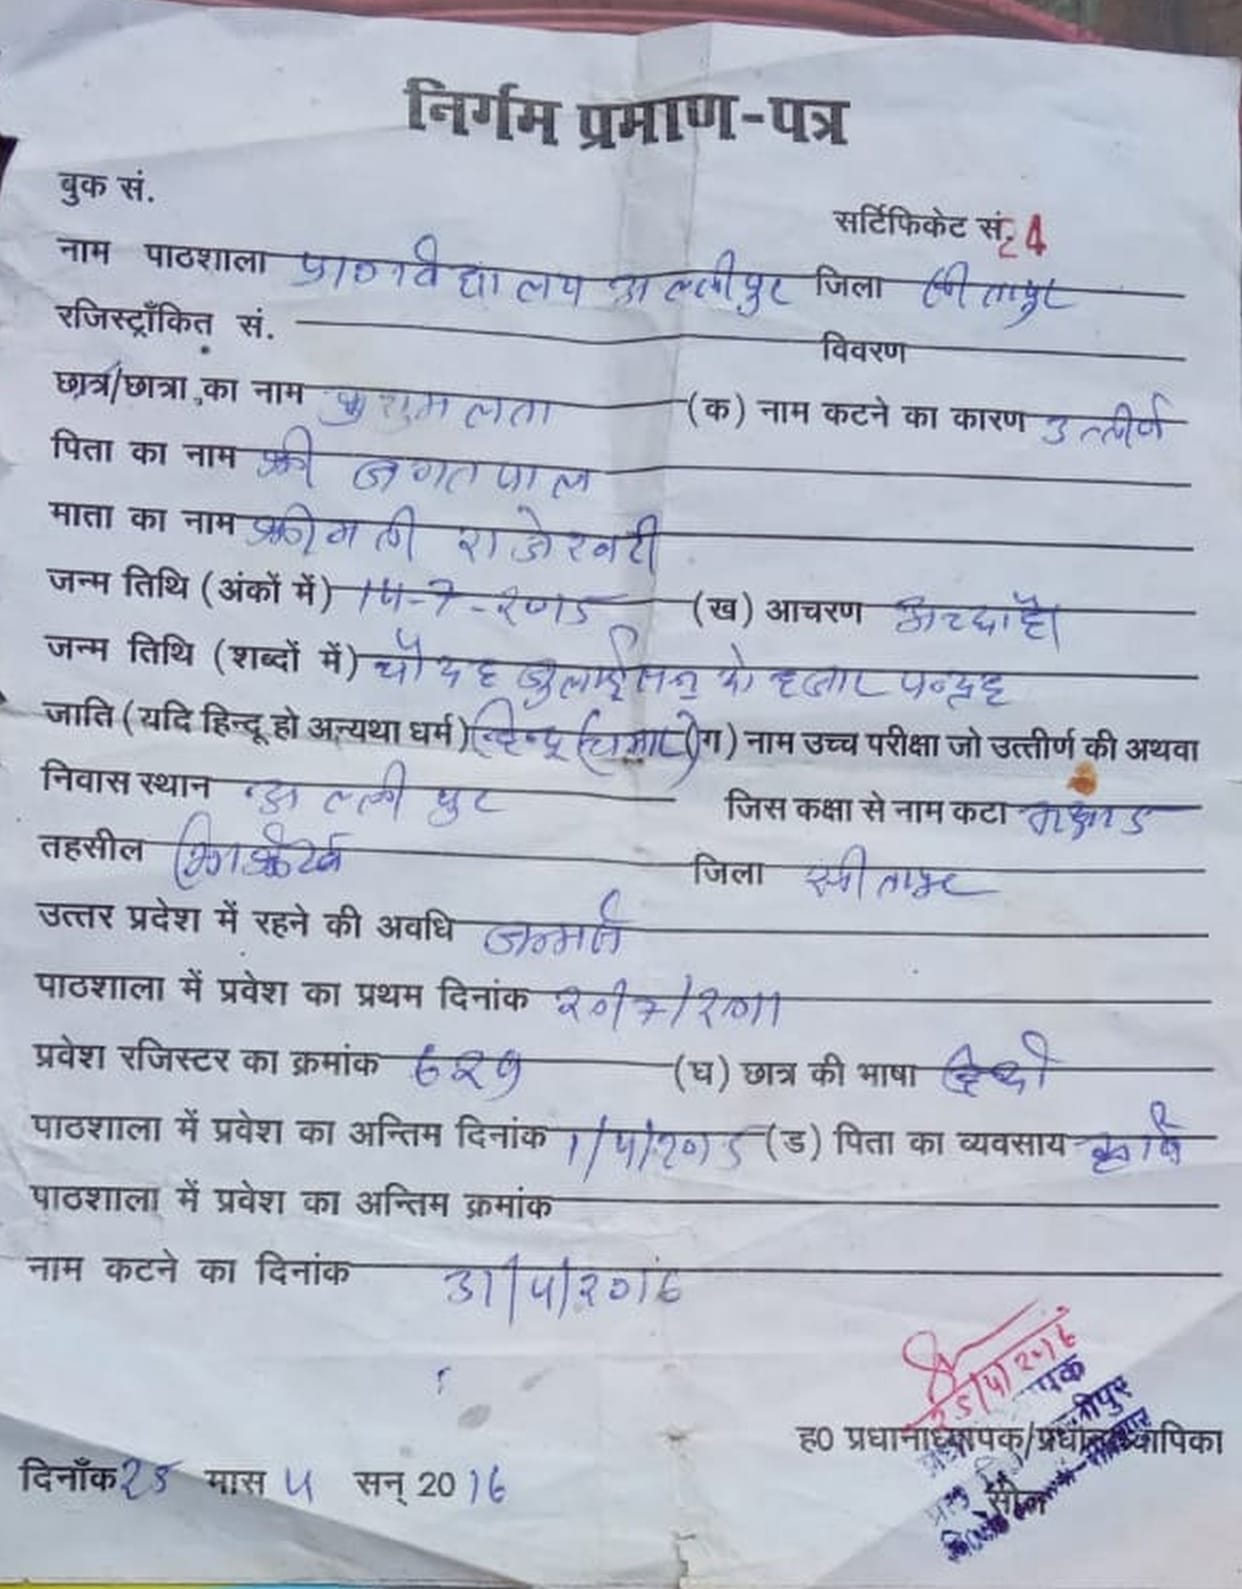 निर्गम प्रमाण-पत्र
बुक सं.
सर्टिफिकेट सं. 24
नाम पाठशाला प्रा० विद्यालय अल्लीपुर जिला सीतापुर
रजिस्ट्राँकित सं.
विवरण
छात्र/छात्रा का नाम कुसुमलता (क) नाम कटने का कारण उत्तीर्ण
पिता का नाम श्री जगतपाल
माता का नाम श्रीमती
जन्म तिथि (अंकों में) 14-7-2015 (ख) आचरण अच्छा है।
जन्म तिथि (शब्दों में) चौदह जुलाई सन् दो हजार पन्द्रह
जाति (यदि हिन्दू हो अन्यथा धर्म) हिन्दू (चमार) (ग) नाम उच्च परीक्षा जो उत्तीर्ण की अथवा
निवास स्थान अल्लीपुर जिस कक्षा से नाम कटा कक्षा 5
तहसील जिला सीतापुर
उत्तर प्रदेश में रहने की अवधि जन्म से
पाठशाला में प्रवेश का प्रथम दिनांक २०/7/२०11
प्रवेश रजिस्टर का क्रमांक 6२9 (घ) छात्र की भाषा हिन्दी
पाठशाला में प्रवेश का अन्तिम दिनांक 1/4/२०15 (ड) पिता का व्यवसाय कृषि
पाठशाला में प्रवेश का अन्तिम क्रमांक
नाम कटने का दिनांक 31/5/२०16
25/5/२०16
ह0 प्रधानाध्यापक/प्रधानाध्यापिका
दिनाँक 25 मास 5 सन् 2016